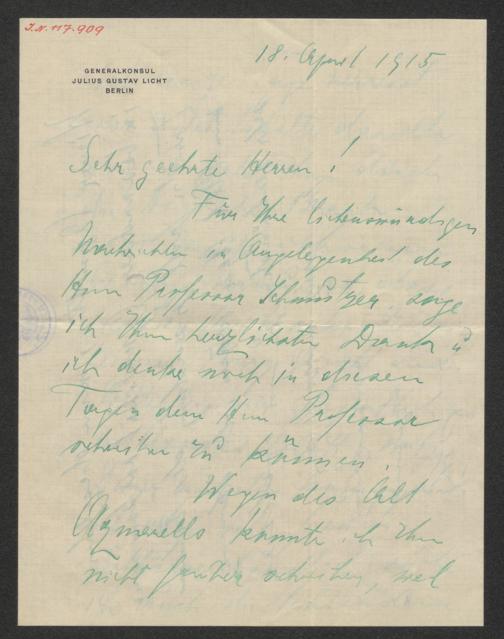 J.N. 117.909
18. April 1915
GENERALKONSUL
JULIUS GUSTAV LICHT
BERLIN
Sehr geehrte Herren!
Für Ihre liebenswürdigen
Nachrichten in Angelegenheit des
Herrn Professor Schmutzer sage
ich Ihnen herzlichsten Dank u
ich denke noch in diesen
Tagen dem Herrn Professor
schreiben zu können.
Wegen des Alt
Aquarells konnte ich Ihnen
nicht früher schreiben, weil